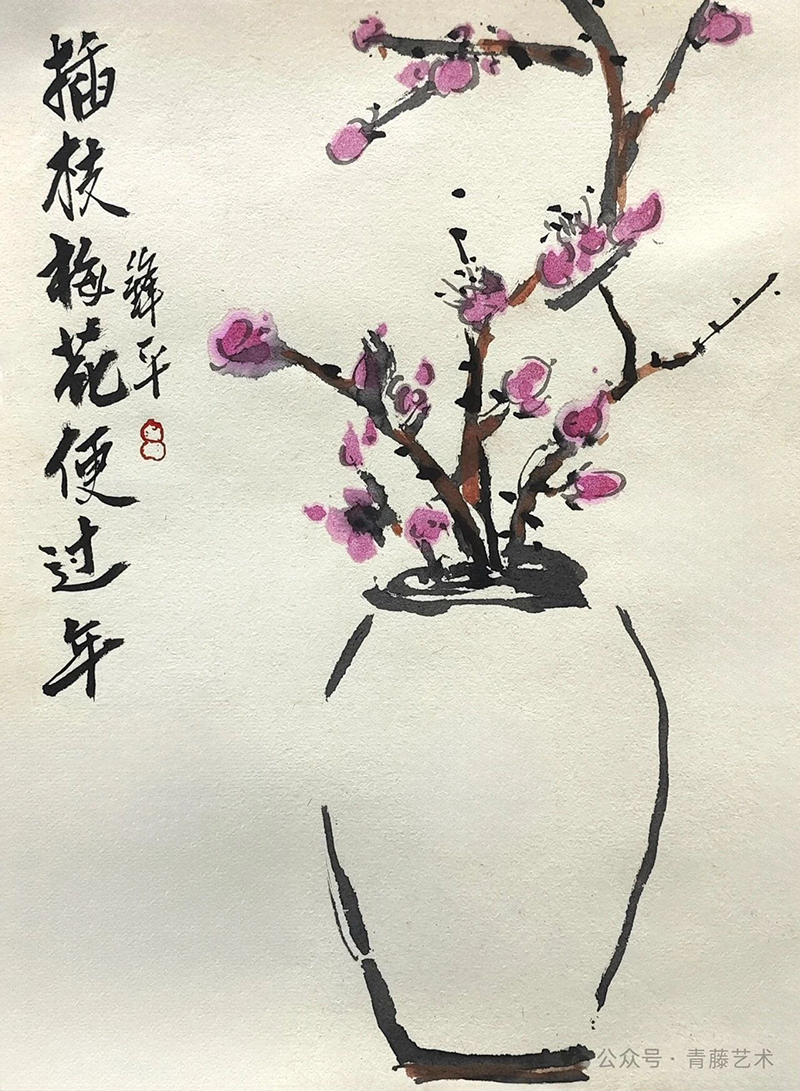 插枝梅花便过年
公众号 · 青藤艺术